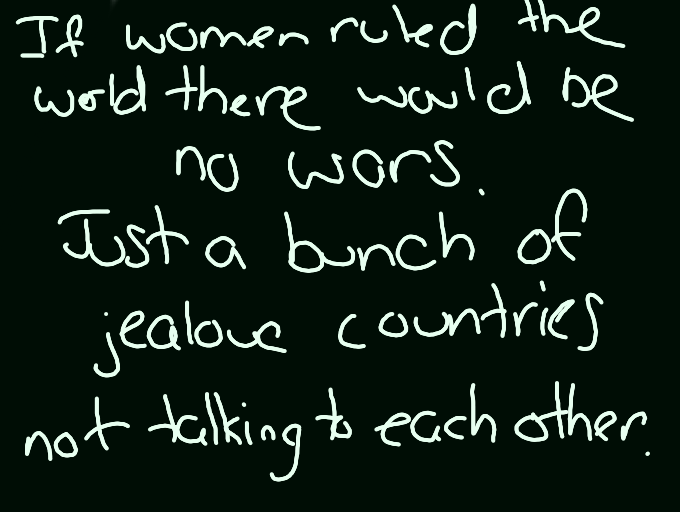 If women ruled the
world there would be
no wars.
Just a bunch of
jealous countries
not talking to each other.